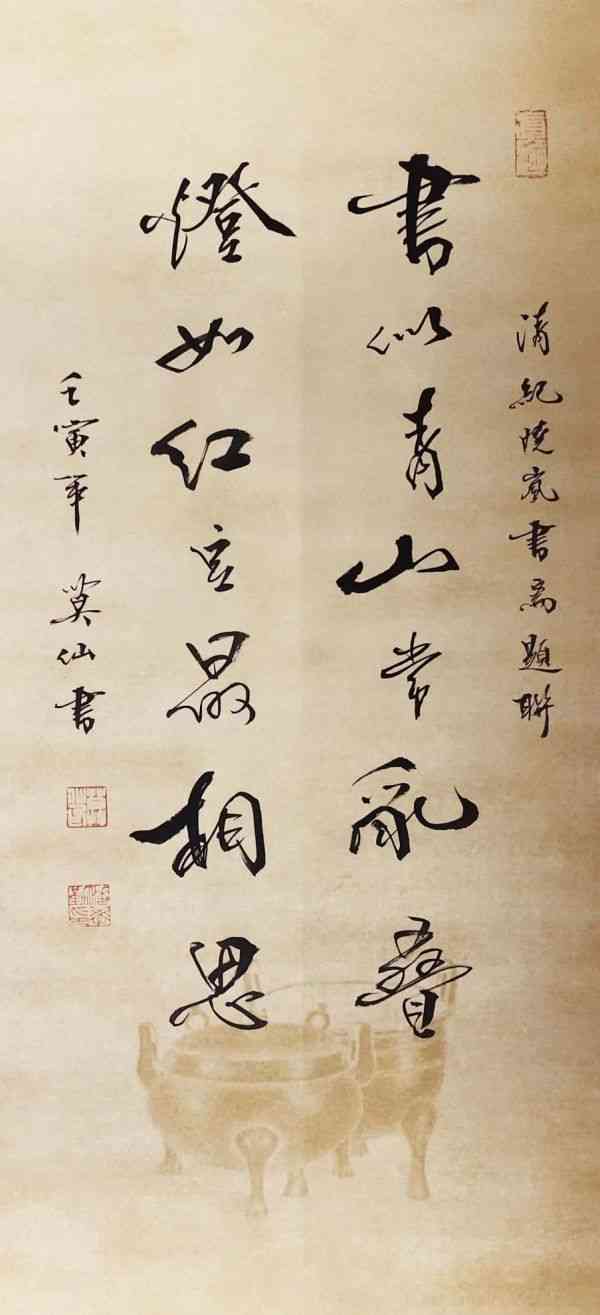 清紀曉嵐書齋題聯
書似青山常亂疊
燈如紅豆最相思
壬寅年 莫仙書